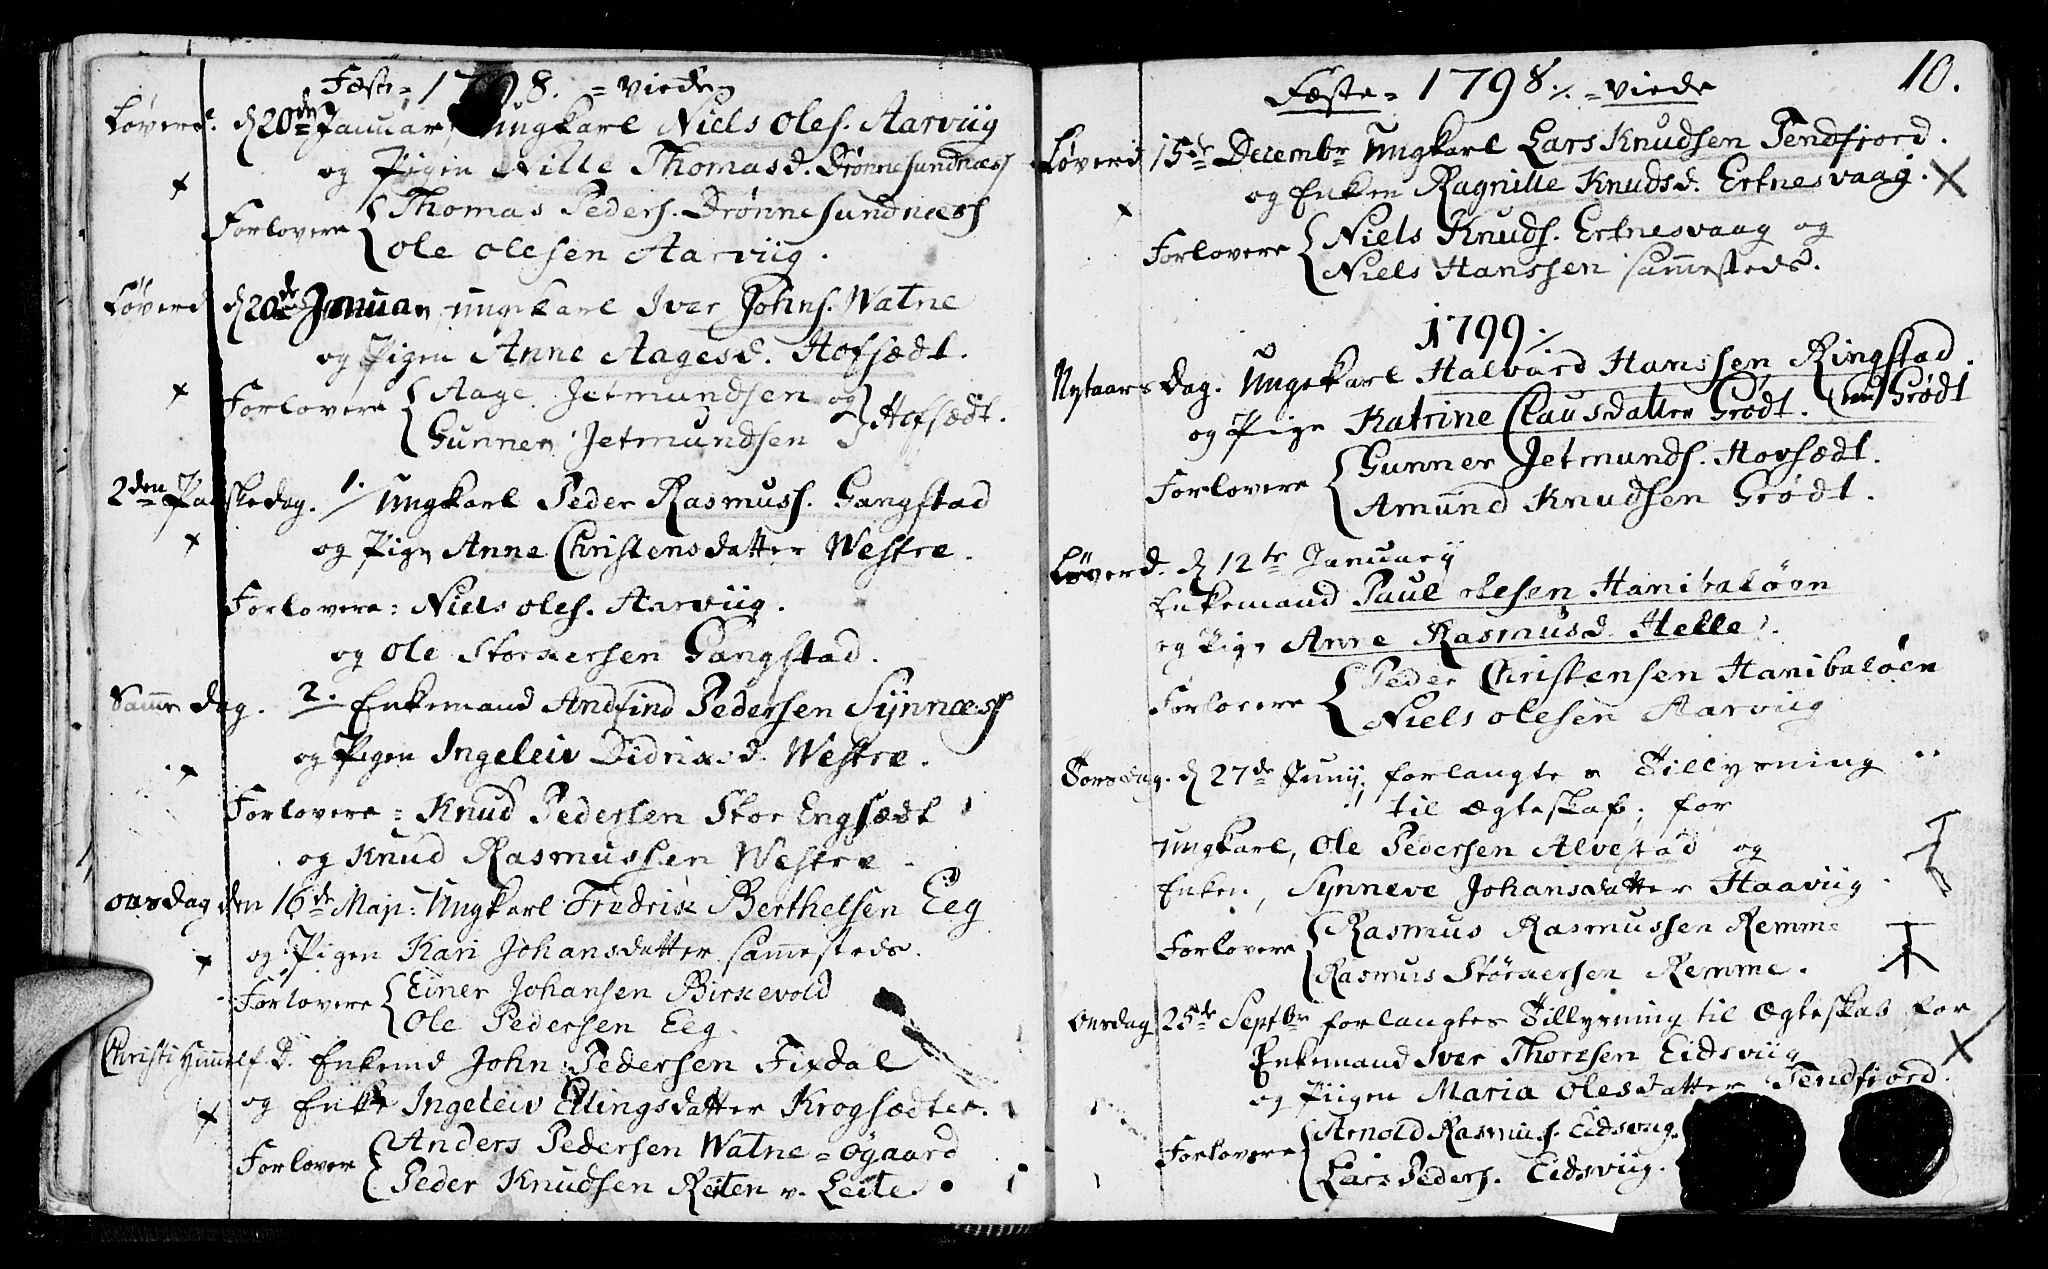 Fæste = 1798. = viede
Løverd. d 20de Januar, Ungkarl Niels Oles. Aarviig
og Pigen Nille Thomasd. Drønnesundnæss
Forlovere Thomas Peders. Drønnesundnæss
Ole Olesen Aarviig.
Løverd d 20de Januar, Ungkarl Iver Johns. Watne
og Pigen Anne Aagesd. Hofsædt.
Forlovere Aage Jetmundsen og
Gunner Jetmundsen Hofsædt.
2den Paaskedag. 1. Ungkarl Peder Rasmuss. Gangstad
og Pign Anne Christensdatter Westre.
Forlovere: Niels Oles. Aarviig.
og Ole Storxersen Gangstad.
Samme dag. 2. Enkemand Andfind Pedersen Synnæss
og Pigen Ingeleiv Didrixd. Westre.
Forlovere = Knud Pedersen Stor Engsædt
og Knud Rasmussen Westre
Onsdag den 16de Maji: Ungkarl Fredrix Berthelsen Eeg
og Pigen Kari Johansdatter sammesteds.
Forlovere Einer Johansen Birxevold
Ole Pedersen Eeg.
Christi Himmelf. D. Enkemd John Pedersen Fixdal
og Enke Ingeleiv Ellingsdatter Krogsædter.
Forlover Anders Pedersen Watne = Øgaard
Peder Knudsen Reiten v. Leite.
10.
Fæste = 1798 ./. = viede
Løverd 15de Decembr Ungkarl Lars Knudsen Tendfiord.
og Enken Ragnille Knudsd. Ertnesvaag.
Forlovere Niels Knuds. Ertnesvaag og
Niels Hanssen sammesteds.
1799 ./.
Nytaars Dag. Ungekarl Halvard Hanssen Ringstad.
og Pige Katrine Clausdatter Grødt. Grødt
Forlovere Gunner Jetmunds. Hovsædt.
Amund Knudsen Grødt.
Løverd. d 12te Januarij
Enkemand Paul Olesen Hanibaløen
og Pige Anne Rasmusd. Helle.
Forlovere Peder Christensen Hanibaløen
Niels Olesen Aarviig
Torsdag. d 27de Junij, forlangte Tillysning
til Ægteskab; for
Ungkarl, Ole Pedersen Alvestad og
Enken, Synneve Johansdatter Haaviig.
Forlovere Rasmus Rasmussen Remme
Rasmus Størxersen Remme.
Onsdag 25de Septbr forlangtes Tillysning til Ægteskab for
Enkemand Iver Thoresen Eidsviig
og Piigen Maria Olesdatter Tendfiord.
Forlovere Arnold Rasmus. Eidsviig.
Lars Peders. Eidsviig.